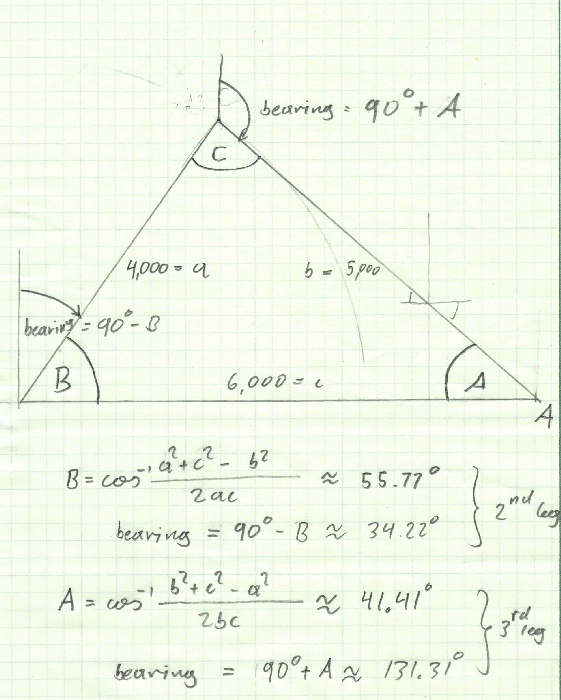 bearing = 90° + A
C
4,000 = a
b = 5,000
bearing = 90° - B
B
6,000 = c
A
A
B = cos⁻¹ a² + c² - b² / 2ac ≈ 55.77°
bearing = 90° - B ≈ 34.22°
} 2nd leg
A = cos⁻¹ b² + c² - a² / 2bc ≈ 41.41°
bearing = 90° + A ≈ 131.31°
} 3rd leg